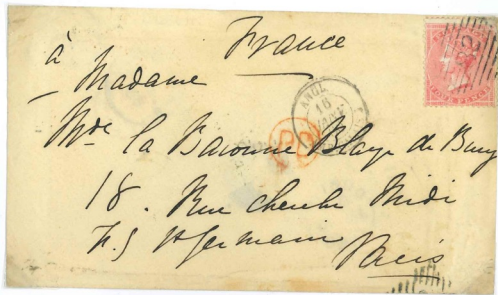 France
à
Madame
Mde la Baronne Blaze de Bury
18. Rue Cherche Midi
F. S Germain
Paris
ANGL.
16
PD